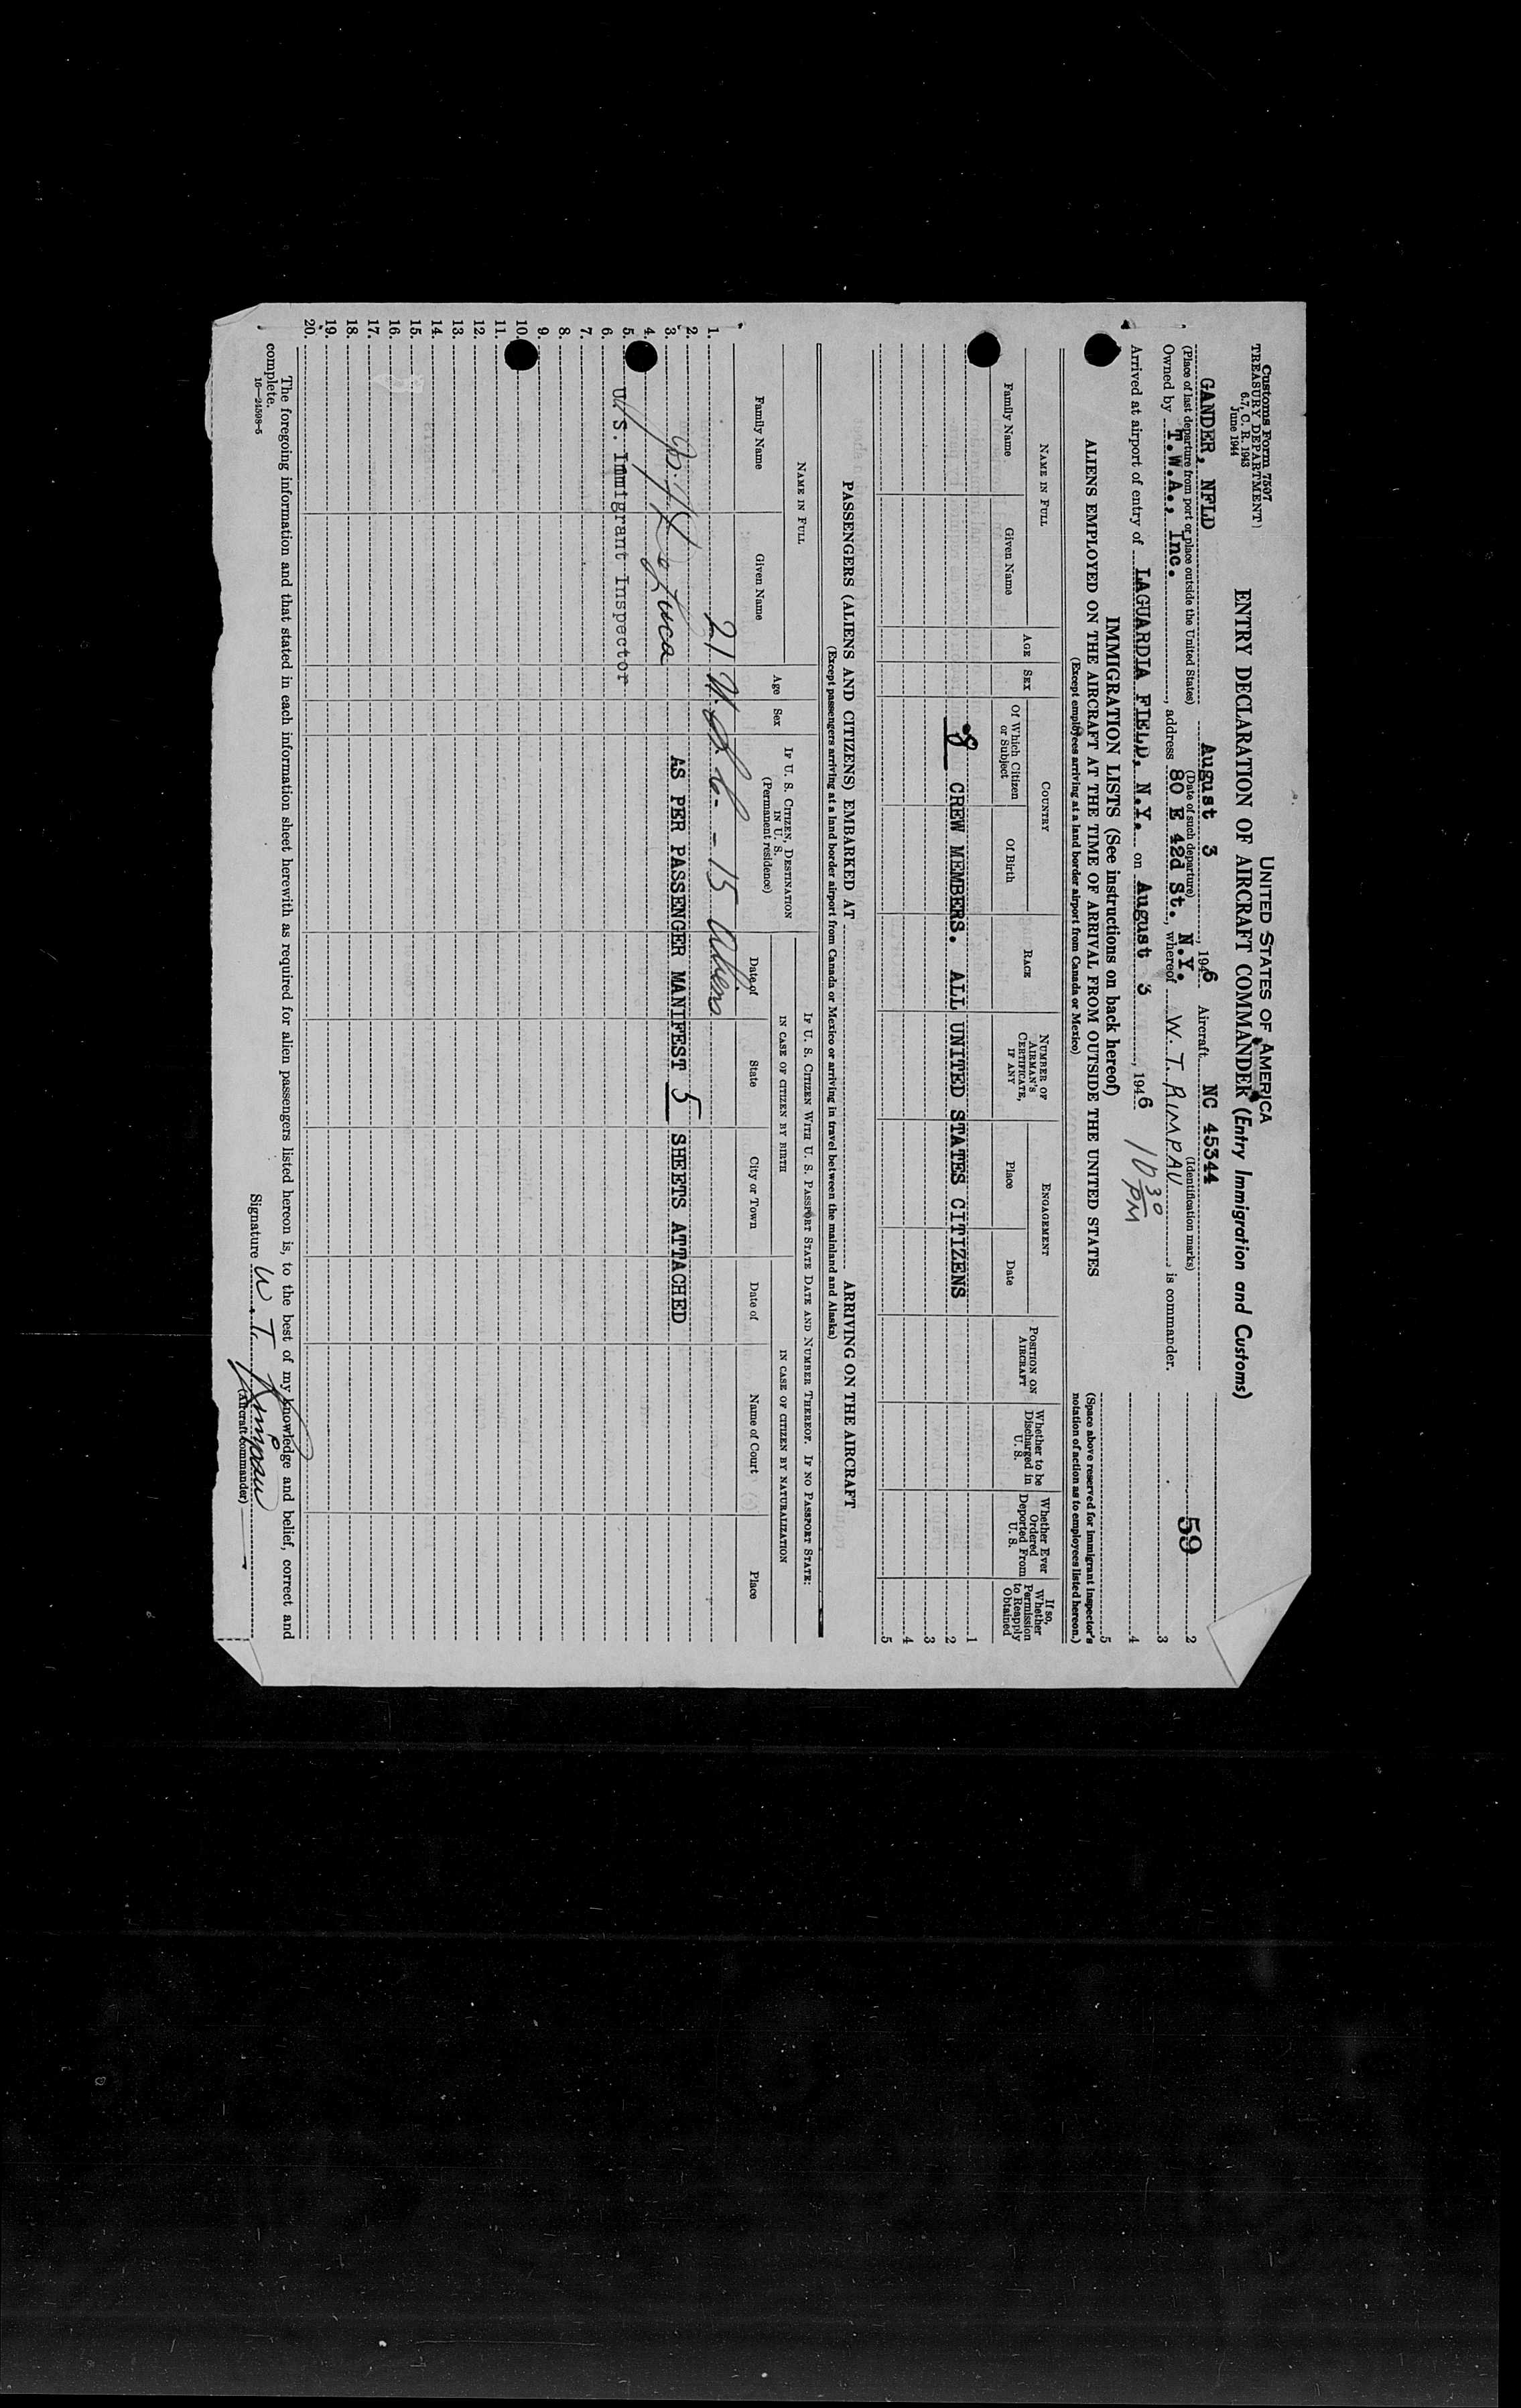 Customs Form 7507
TREASURY DEPARTMENT
6.7, C. R. 1943
June 1944
UNITED STATES OF AMERICA
ENTRY DECLARATION OF AIRCRAFT COMMANDER (Entry Immigration and Customs)
59
GANDER, NFLD August 3, 1946 Aircraft NC 45344
(Place of last departure from port or place outside the United States) (Date of such departure) (Identification marks)
Owned by T.W.A., Inc., address 80 E 42d St. N.Y., whereof W. T. RIMPAU, is commander.
Arrived at airport of entry of LAGUARDIA FIELD, N.Y. on August 3, 1946 10 30 PM
2
3
4
5
(Space above reserved for immigrant inspector's notation of action as to employees listed hereon.)
IMMIGRATION LISTS (See instructions on back hereof)
ALIENS EMPLOYED ON THE AIRCRAFT AT THE TIME OF ARRIVAL FROM OUTSIDE THE UNITED STATES
(Except employees arriving at a land border airport from Canada or Mexico)
NAME IN FULL AGE SEX COUNTRY RACE NUMBER OF AIRMAN'S CERTIFICATE, IF ANY ENGAGEMENT POSITION ON AIRCRAFT Whether to be Discharged in U. S. Whether Ever Ordered Deported From U. S. If so, Whether Permission to Reapply Obtained
Family Name Given Name Of Which Citizen or Subject Of Birth Place Date
1
8 CREW MEMBERS. ALL UNITED STATES CITIZENS 2
3
4
5
PASSENGERS (ALIENS AND CITIZENS) EMBARKED AT ARRIVING ON THE AIRCRAFT
(Except passengers arriving at a land border airport from Canada or Mexico or arriving in travel between the mainland and Alaska)
NAME IN FULL Age Sex IF U. S. CITIZEN, DESTINATION IN U. S. (Permanent residence) IF U. S. CITIZEN WITH U. S. PASSPORT STATE DATE AND NUMBER THEREOF. IF NO PASSPORT STATE:
IN CASE OF CITIZEN BY BIRTH IN CASE OF CITIZEN BY NATURALIZATION
Family Name Given Name Date of State City or Town Date of Name of Court Place
1. 21 U.S.C. - 15 Aliens
2.
3. AS PER PASSENGER MANIFEST 5 SHEETS ATTACHED
4.
5. U. S. Immigrant Inspector
6.
7.
8.
9.
10.
11.
12
13.
14.
15.
16.
17.
18.
19.
20.
The foregoing information and that stated in each information sheet herewith as required for alien passengers listed hereon is, to the best of my knowledge and belief, correct and
complete.
16—24598-5
Signature W T Rimpau
(Aircraft commander)